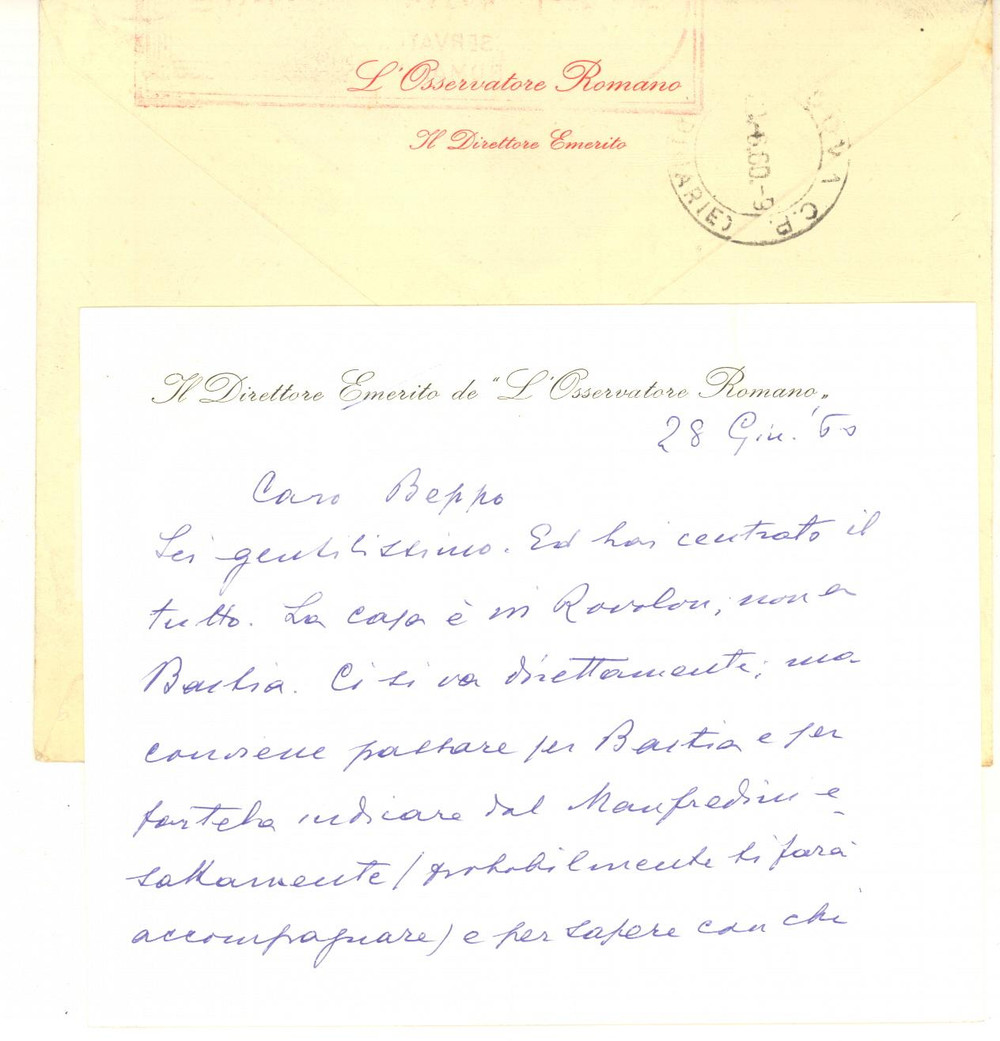 L'Osservatore Romano
Il Direttore Emerito
Il Direttore Emerito de "L'Osservatore Romano„
28 Giu. '60
Caro Beppo
Sei gentilissimo. Ed hai centrato il
tutto. La casa è in Rovolon, non a
Bastia. Ci si va direttamente; ma
conviene passare per Bastia e per
fartela indicare dal Manfredini e-
sattamente (probabilmente ti farà
accompagnare) e per sapere con chi